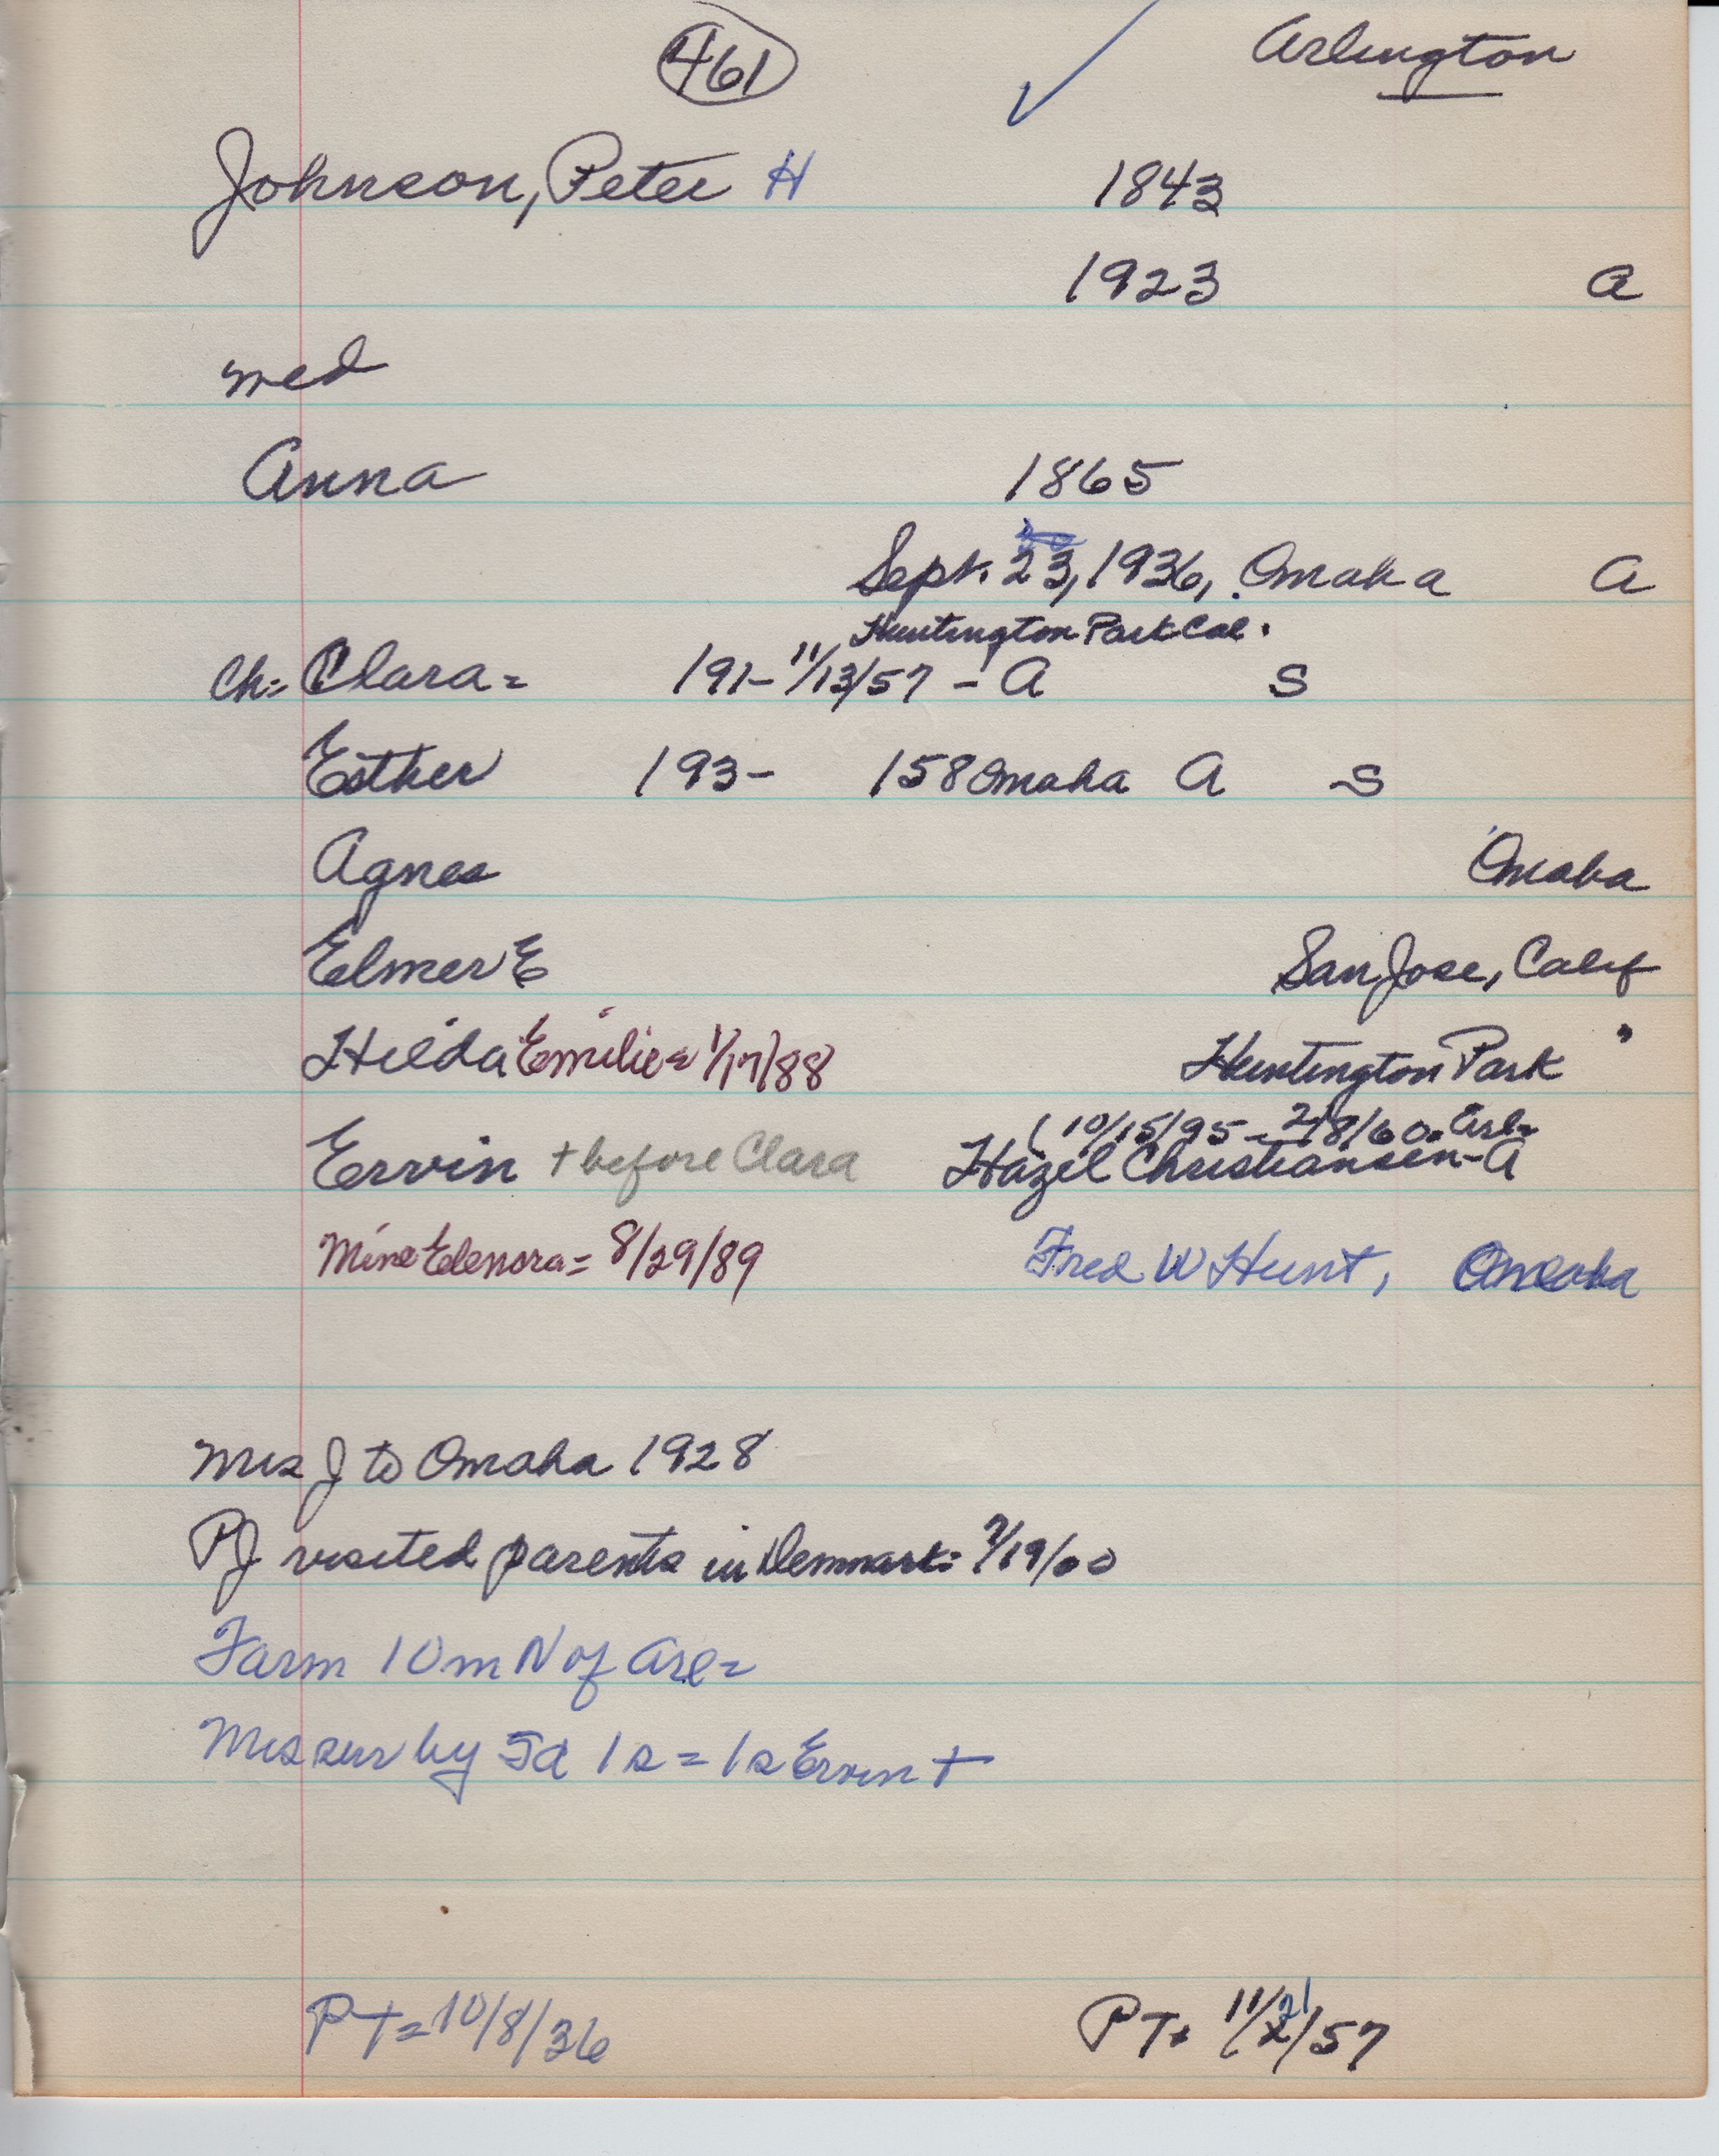 461 ✓ Arlington
Johnson, Peter H 1843
1923 A
med
Anna 1865
Sept. 23, 1936, Omaha A
Huntington Park Cal.
Ch= Clara= 191- 11/13/57 - A S
Esther 193- 158 Omaha A S
Agnes Omaha
Elmer E San Jose, Calif
Hilda Emilie= 1/17/88 Huntington Park "
( 10/15/95 - 2/8/60. Arl=
Ervin + before Clara Hazel Christiansen - A
Mine Elenora= 8/29/89 Fred W Hunt, Omaha
Mrs J to Omaha 1928
PJ visited parents in Denmark= 7/19/00
Farm 10 m N of Arl=
Mrs sur by 5d 1s = 1s Ervin +
PT= 10/8/36 PT= 11/21/57